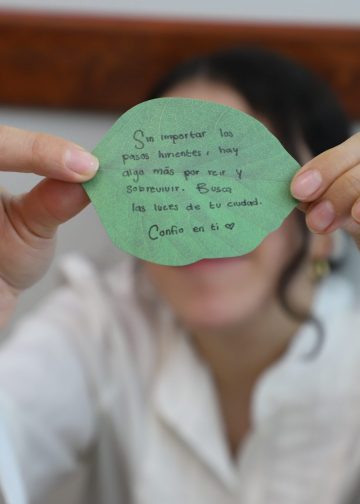 Sin importar los
pasos hirientes, hay
algo más por reir y
sobrevivir. Busca
las luces de tu ciudad.
Confío en ti ♥